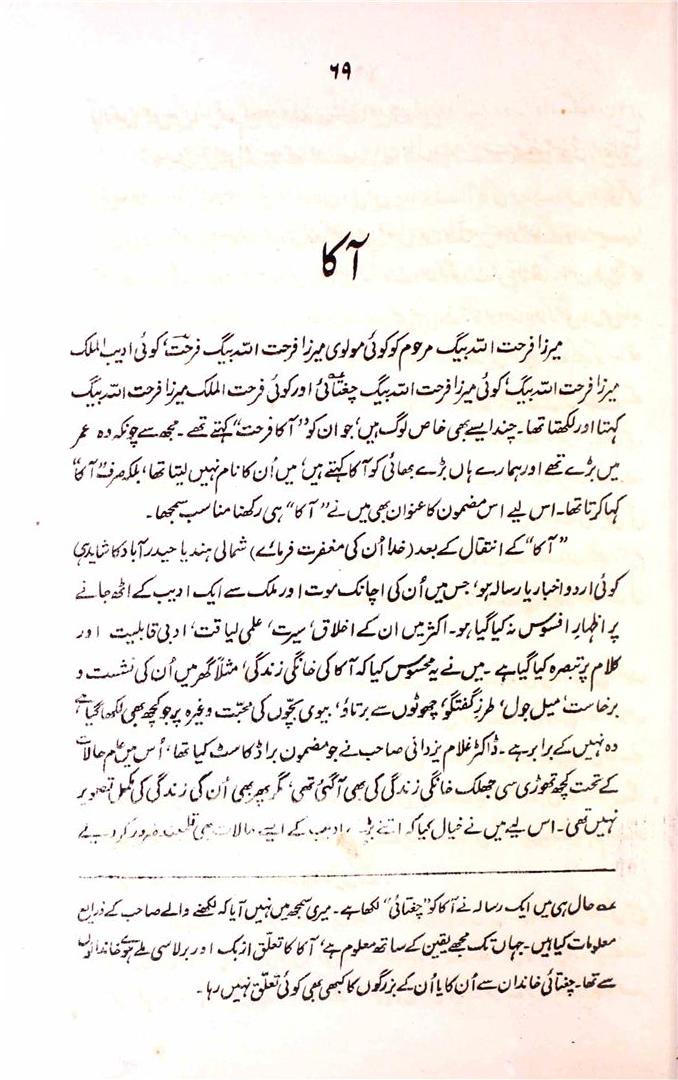 ۶۹
آکا
میرزا فرحت اللہ بیگ مرحوم کو کوئی مولوی میرزا فرحت اللہ بیگ فرحت، کوئی ادیب الملک
میرزا فرحت اللہ بیگ، کوئی میرزا فرحت اللہ بیگ چغتائی اور کوئی فرحت الملک میرزا فرحت اللہ بیگ
کہتا اور لکھتا تھا۔ چند ایسے بھی خاص لوگ ہیں، جو ان کو "آکا فرحت" کہتے تھے۔ مجھ سے چونکہ وہ عمر
میں بڑے تھے اور ہمارے ہاں بڑے بھائی کو آکا کہتے ہیں، میں اُن کا نام نہیں لیتا تھا، بلکہ صرف "آکا"
کہا کرتا تھا۔ اس لیے اس مضمون کا عنوان بھی میں نے "آکا" ہی رکھنا مناسب سمجھا۔
"آکا" کے انتقال کے بعد (خدا اُن کی مغفرت فرمائے) شمالی ہند یا حیدرآباد کا شاید ہی
کوئی اردو اخبار یا رسالہ ہو، جس میں اُن کی اچانک موت اور ملک سے ایک ادیب کے اٹھ جانے
پر اظہارِ افسوس نہ کیا گیا ہو۔ اکثر میں ان کے اخلاق، سیرت، علمی لیاقت، ادبی قابلیت اور
کلام پر تبصرہ کیا گیا ہے۔ میں نے یہ محسوس کیا کہ آکا کی خانگی زندگی، مثلاً گھر میں اُن کی نشست و
برخاست، میل جول، طرزِ گفتگو، چھوٹوں سے برتاؤ، بیوی بچّوں کی محبّت وغیرہ پر جو کچھ بھی لکھا گیا ہے
وہ نہیں کے برابر ہے۔ ڈاکٹر غلام یزدانی صاحب نے جو مضمون براڈکاسٹ کیا تھا، اُس میں عام حالات
کے تحت کچھ تھوڑی سی جھلک خانگی زندگی کی بھی آگئی تھی، مگر پھر بھی اُن کی زندگی کی مکمل تصویر
نہیں تھی۔ اس لیے میں نے خیال کیا کہ اتنے بڑے ادیب کے ایسے حالات بھی قلمبند ضرور کر دیے
؎ حال ہی میں ایک رسالہ نے آکا کو "چغتائی" لکھا ہے۔ میری سمجھ میں نہیں آیا کہ لکھنے والے صاحب کے ذرائع
معلومات کیا ہیں۔ جہاں تک مجھے یقین کے ساتھ معلوم ہے، آکا کا تعلق ازبک اور برلاسی ملے ہوئے خاندانوں
سے تھا۔ چغتائی خاندان سے اُن کا یا اُن کے بزرگوں کا کبھی بھی کوئی تعلّق نہیں رہا۔